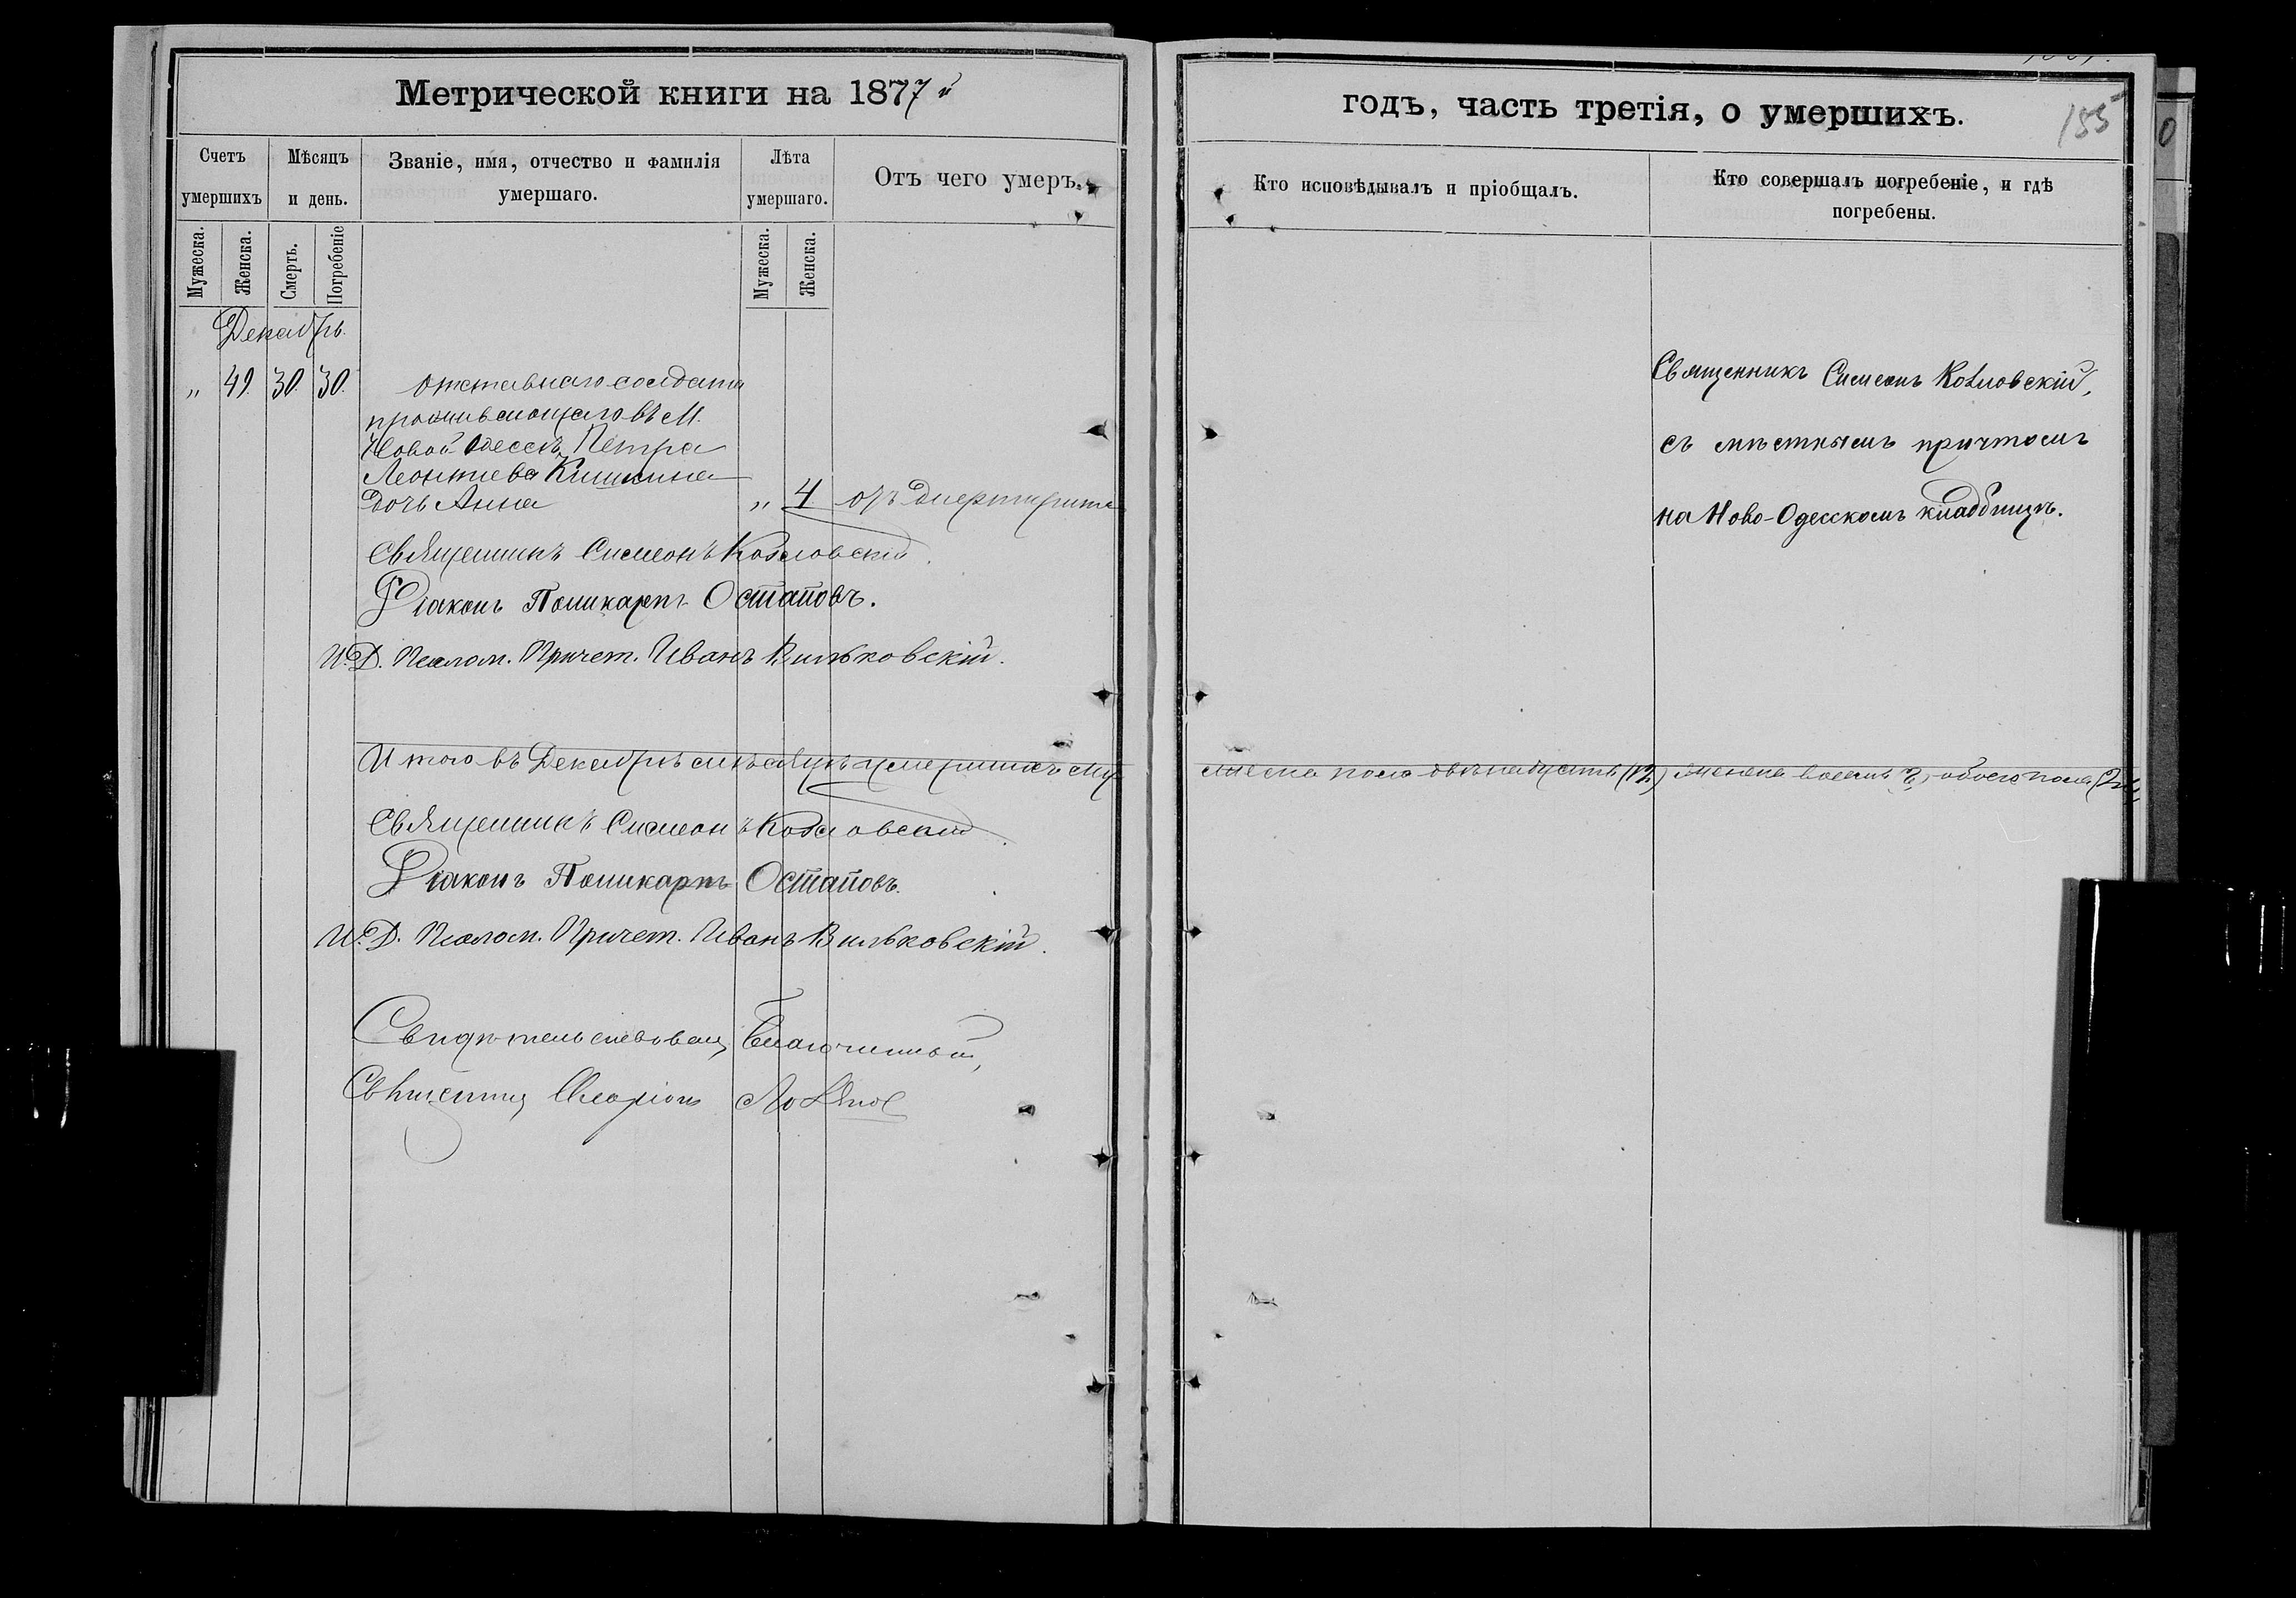 Метрической книги на 1877й
годъ, часть третія, о умершихъ.
155
Счетъ умершихъ
Мѣсяцъ и день.
Званіе, имя, отчество и фамилія умершаго.
Лѣта умершаго.
Отъ чего умеръ.
Кто исповѣдывалъ и пріобщалъ.
Кто совершалъ погребеніе, и гдѣ погребены.
Мужеска.
Женска.
Смерть.
Погребеніе
Мужеска.
Женска.
Декабрь.
„ 49. 30. 30. Отставнаго солдата
проживающаго въ М.
Новой Одессѣ Петра
Леонтиева Кишкина
дочь Анна „ 4 отъ дифтирита
Священникъ Симеонъ Козловскій,
съ мѣстнымъ причтомъ
на Ново-Одесскомъ кладбищѣ.
Священникъ Симеонъ Козловскій.
Діаконъ Поликарпъ Остаповъ.
И.Д. Псалом. Причет. Иванъ Вильковскій.
Итого въ Декабрѣ мѣсяцѣ умершихъ му-
жеска пола двѣнадцать (12) женска восемь обоего пола
Священникъ Симеонъ Козловскій.
Діаконъ Поликарпъ Остаповъ.
И.Д. Псалом. Причет. Иванъ Вильковскій.
Свидѣтельствовалъ Благочинный,
Священникъ Иларіонъ